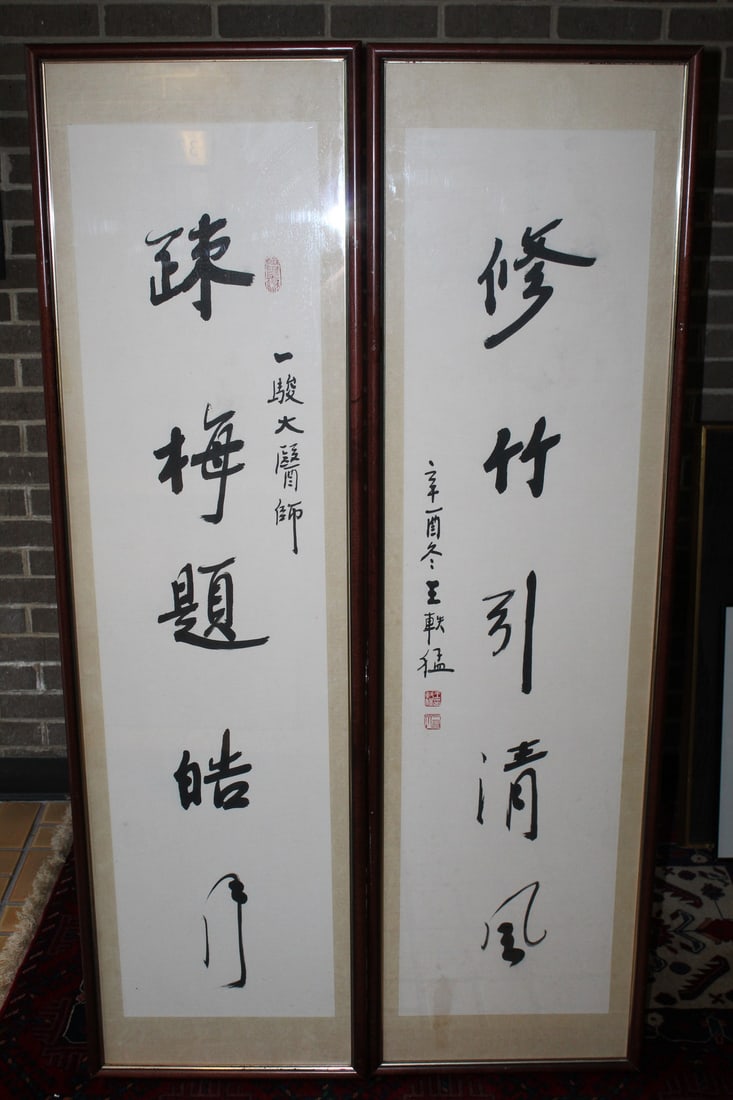 踈梅題皓月
一駿大醫師
修竹引清風
辛酉冬王軼猛